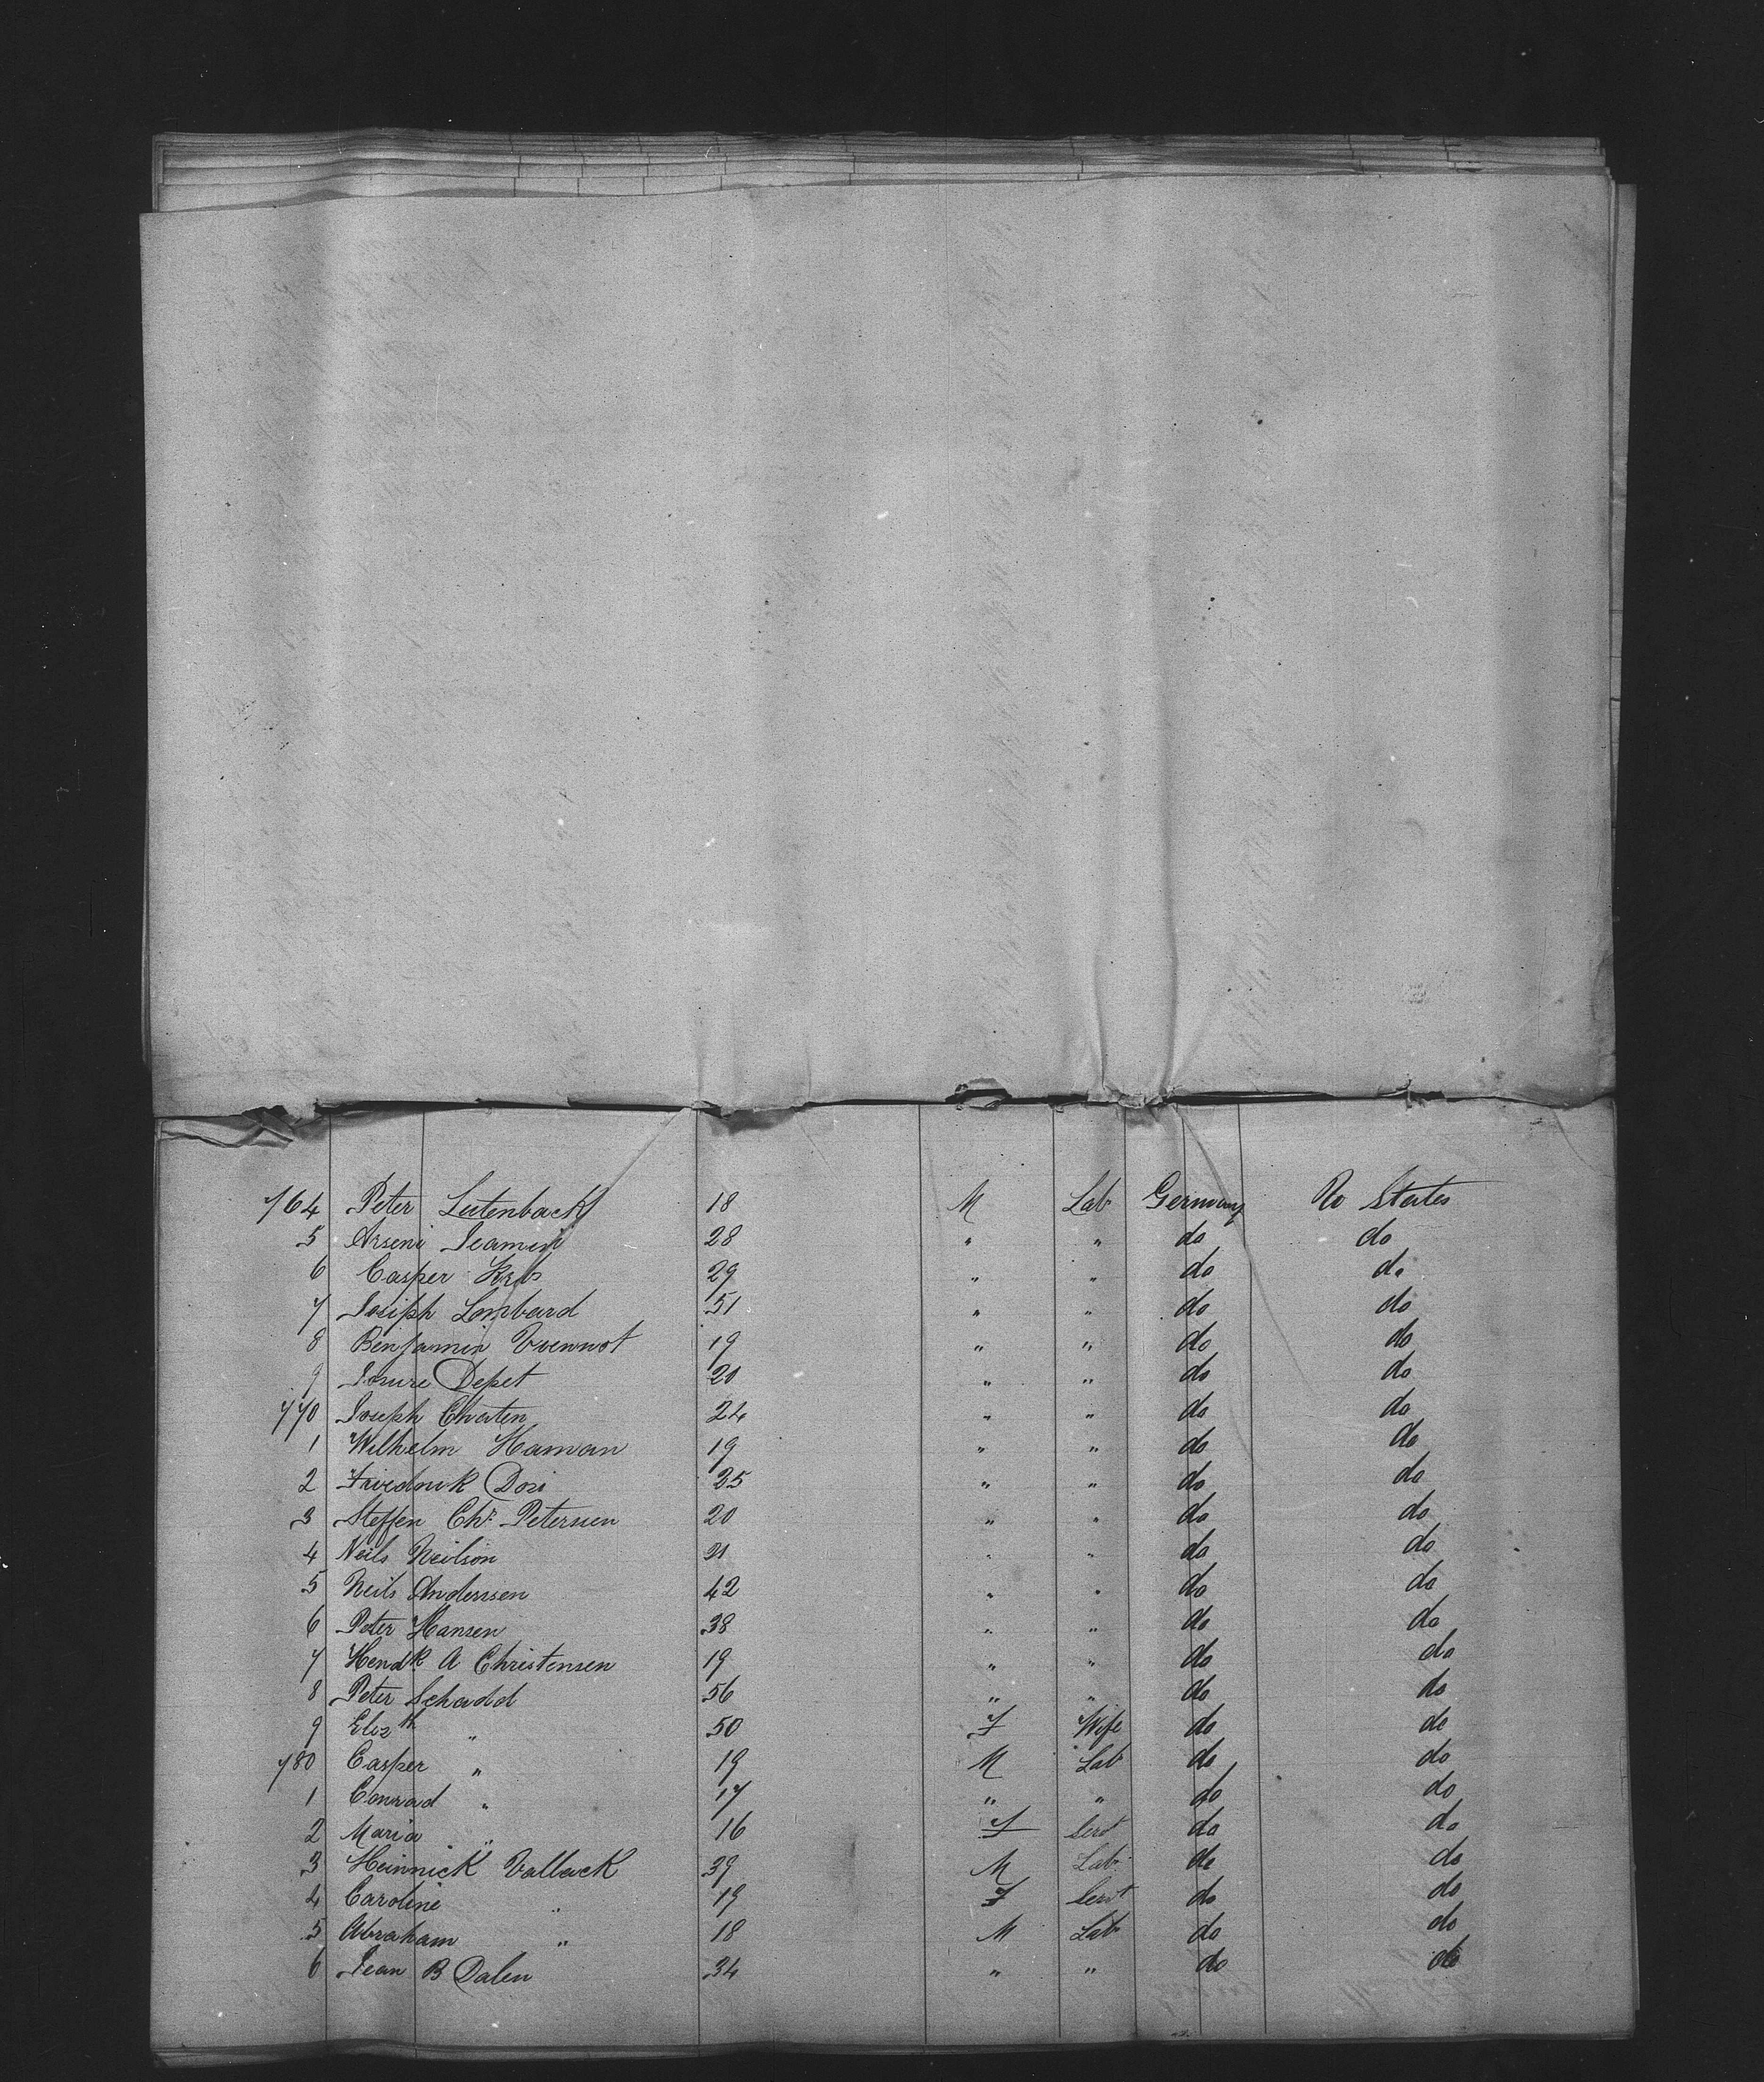 764 Peter Leitenback 18 M Lab Germany Uo States
5 Arseni Jeamin 28 " " do do
6 Casper Keb 29 " " do do
7 Joseph Lombard 51 " " do do
8 Benjamin Vuennot 19 " " do do
9 Depet 20 " " do do
770 Joseph Chaten 24 " " do do
1 Wilhelm Haman 19 " " do do
2 Friedrick Dosi 25 " " do do
3 Steffen Chr. Petersen 20 " " do do
4 Neils Neilson 21 " " do do
5 Neils Anderssen 42 " " do do
6 Peter Hansen 38 " " do do
7 Hendk A Christensen 19 " " do do
8 Peter Schadd 56 " " do do
9 Elizth " 50 F Wife do do
780 Casper " 19 M Lab do do
1 Conrad " 17 " " do do
2 Maria " 16 F Servt do do
3 Heinnick Vallack 39 M Lab do do
4 Caroline " 19 F Servt do do
5 Abraham " 18 M Lab do do
6 Jean B Dalen 34 " " do do